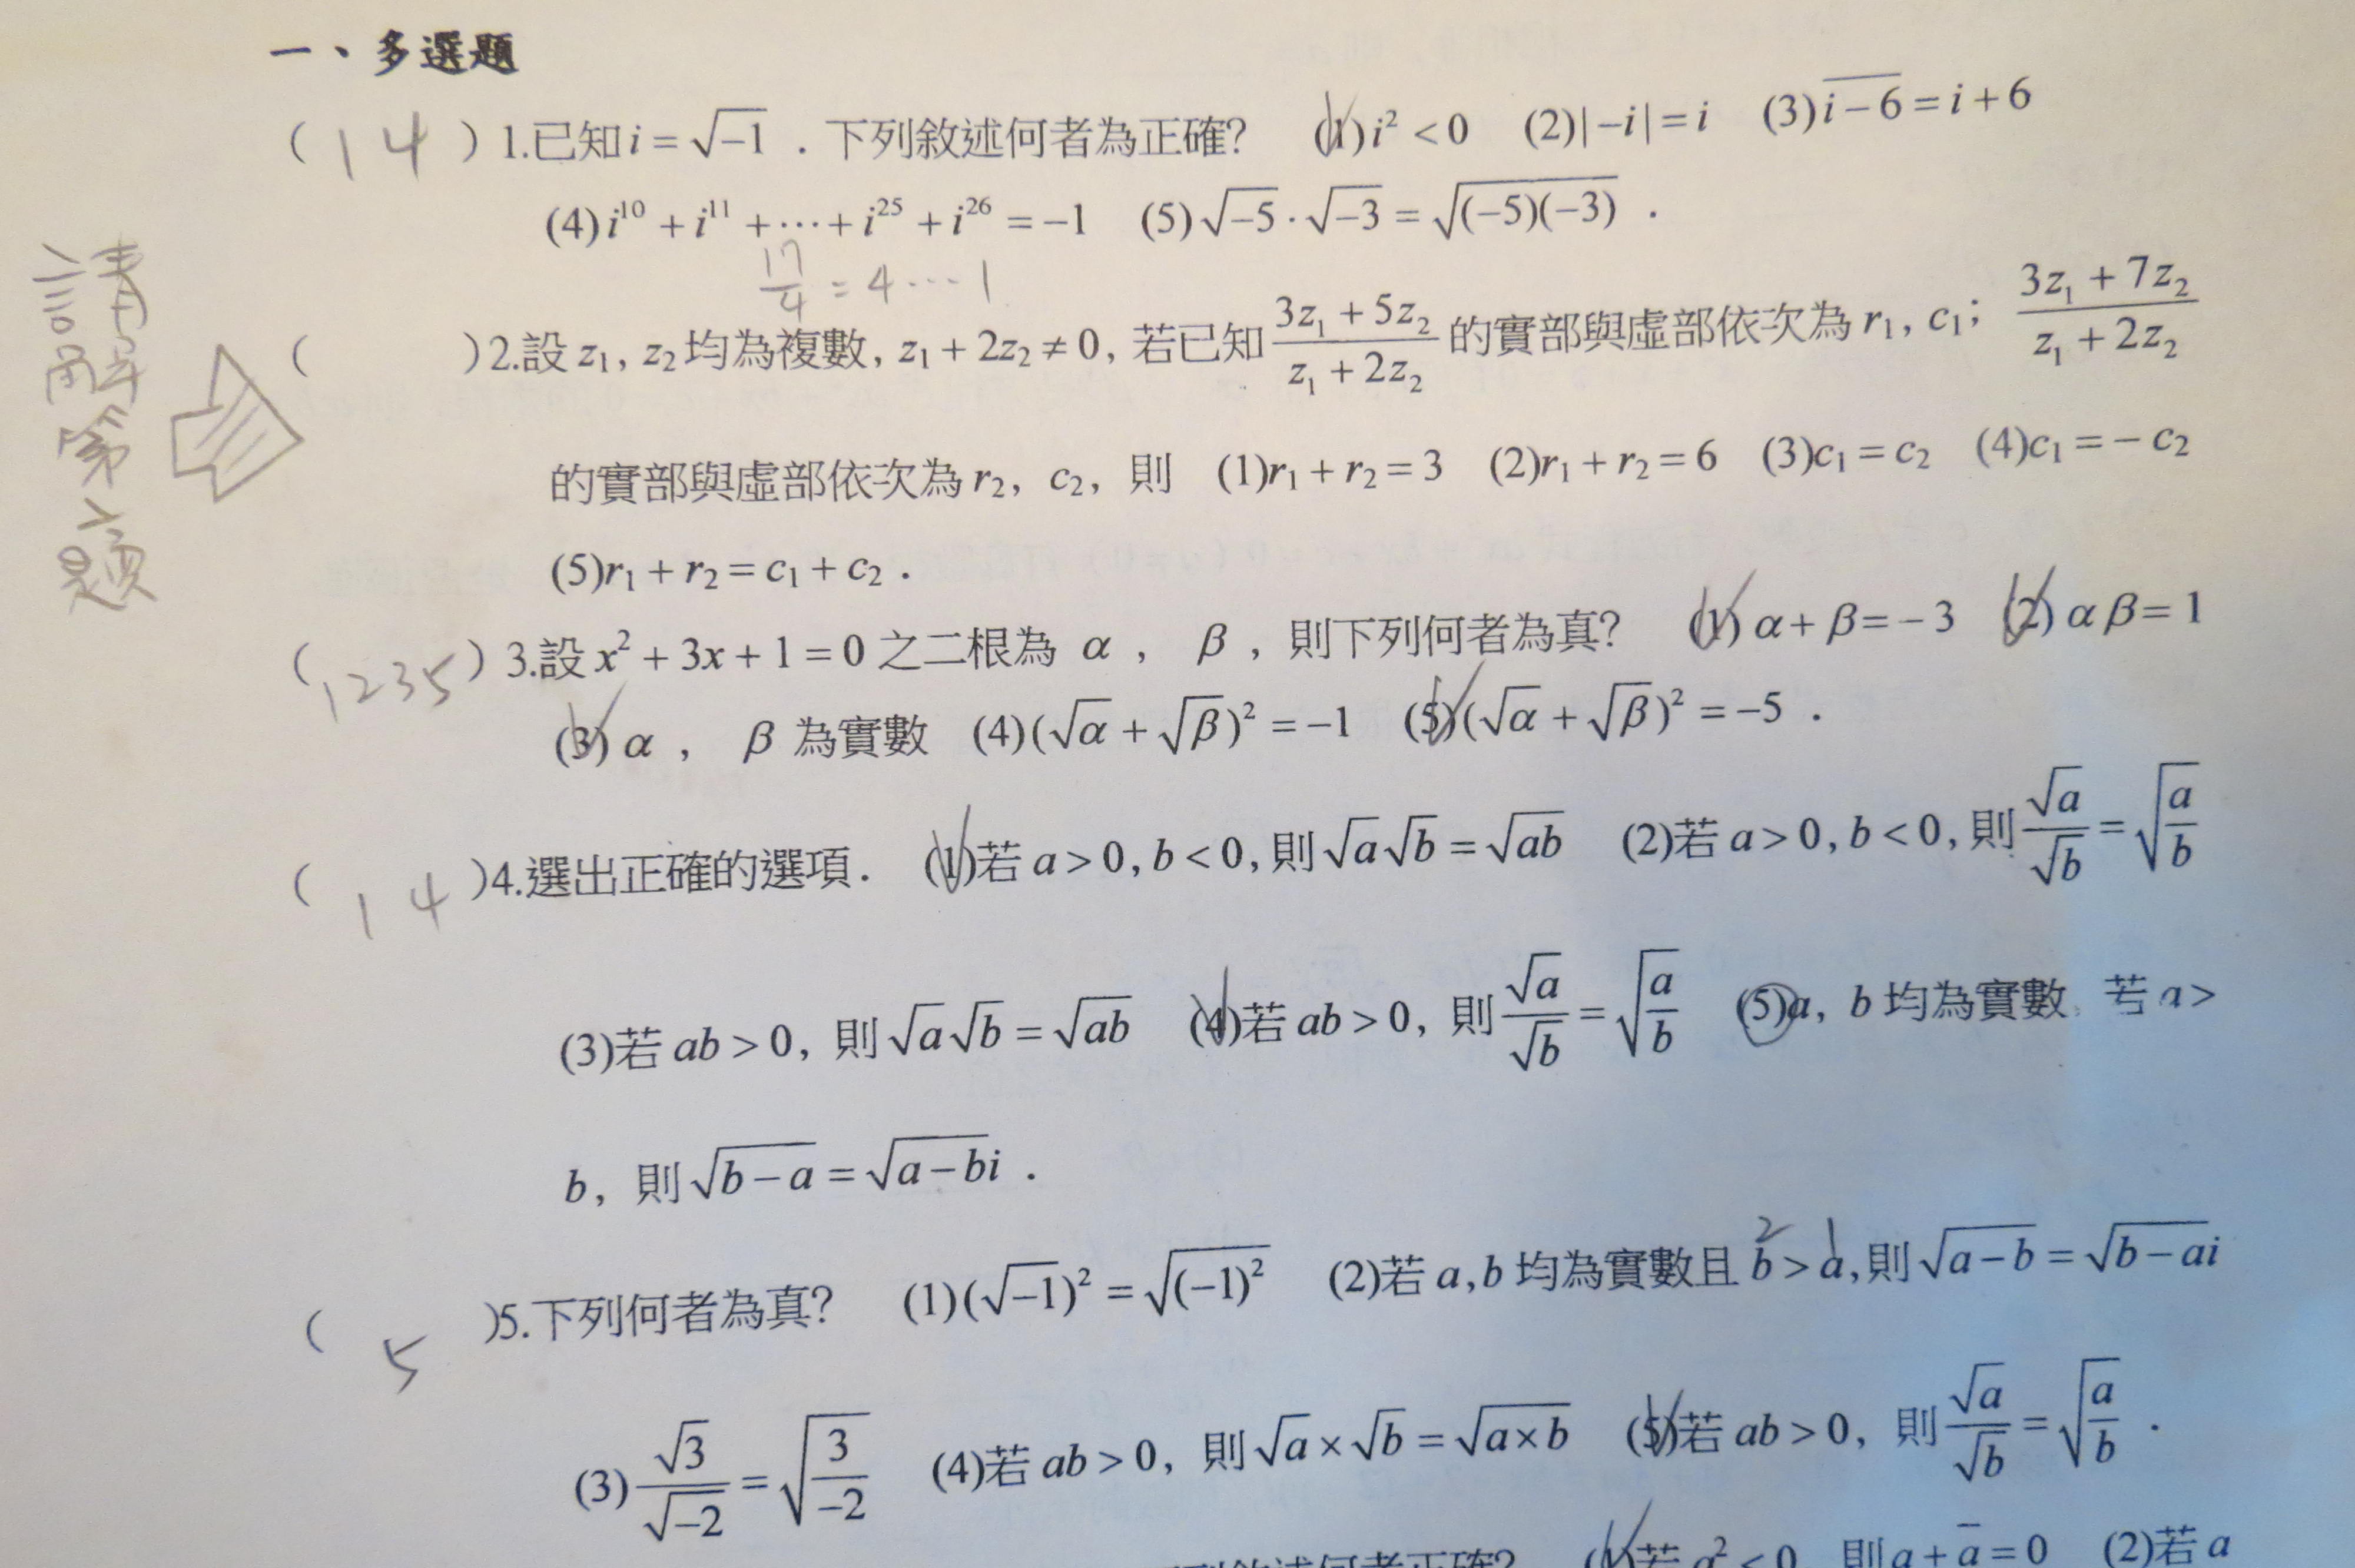 一、多選題
( 14 ) 1.已知 i = √-1 ．下列敘述何者為正確? (1) i² < 0 (2)|-i| = i (3) \overline{i-6} = i + 6
(4) i¹⁰ + i¹¹ + ⋯ + i²⁵ + i²⁶ = -1 (5) √-5 · √-3 = √((-5)(-3)) ．
17/4 = 4 ⋯ 1
請解第2題
( )2.設 z₁, z₂ 均為複數, z₁ + 2z₂ ≠ 0, 若已知 (3z₁ + 5z₂)/(z₁ + 2z₂) 的實部與虛部依次為 r₁, c₁; (3z₁ + 7z₂)/(z₁ + 2z₂)
的實部與虛部依次為 r₂, c₂, 則 (1)r₁ + r₂ = 3 (2)r₁ + r₂ = 6 (3)c₁ = c₂ (4)c₁ = - c₂
(5)r₁ + r₂ = c₁ + c₂ ．
( 1235 ) 3.設 x² + 3x + 1 = 0 之二根為 α , β , 則下列何者為真? (1) α + β = - 3 (2) α β = 1
(3) α , β 為實數 (4)(√α + √β)² = -1 (5)(√α + √β)² = -5 ．
( 14 )4.選出正確的選項． (1)若 a > 0, b < 0, 則 √a√b = √ab (2)若 a > 0, b < 0, 則 √a/√b = √(a/b)
(3)若 ab > 0, 則 √a√b = √ab (4)若 ab > 0, 則 √a/√b = √(a/b) (5)a, b 均為實數, 若 a >
b, 則 √(b-a) = √(a-b)i ．
2 1
( 5 )5.下列何者為真? (1)(√-1)² = √((-1)²) (2)若 a,b 均為實數且 b > a, 則 √(a-b) = √(b-a)i
(3) √3/√-2 = √(3/-2) (4)若 ab > 0, 則 √a × √b = √(a×b) (5)若 ab > 0, 則 √a/√b = √(a/b) ．
列敘述何者正確? (1)若 a² < 0, 則 a + \overline{a} = 0 (2)若 a